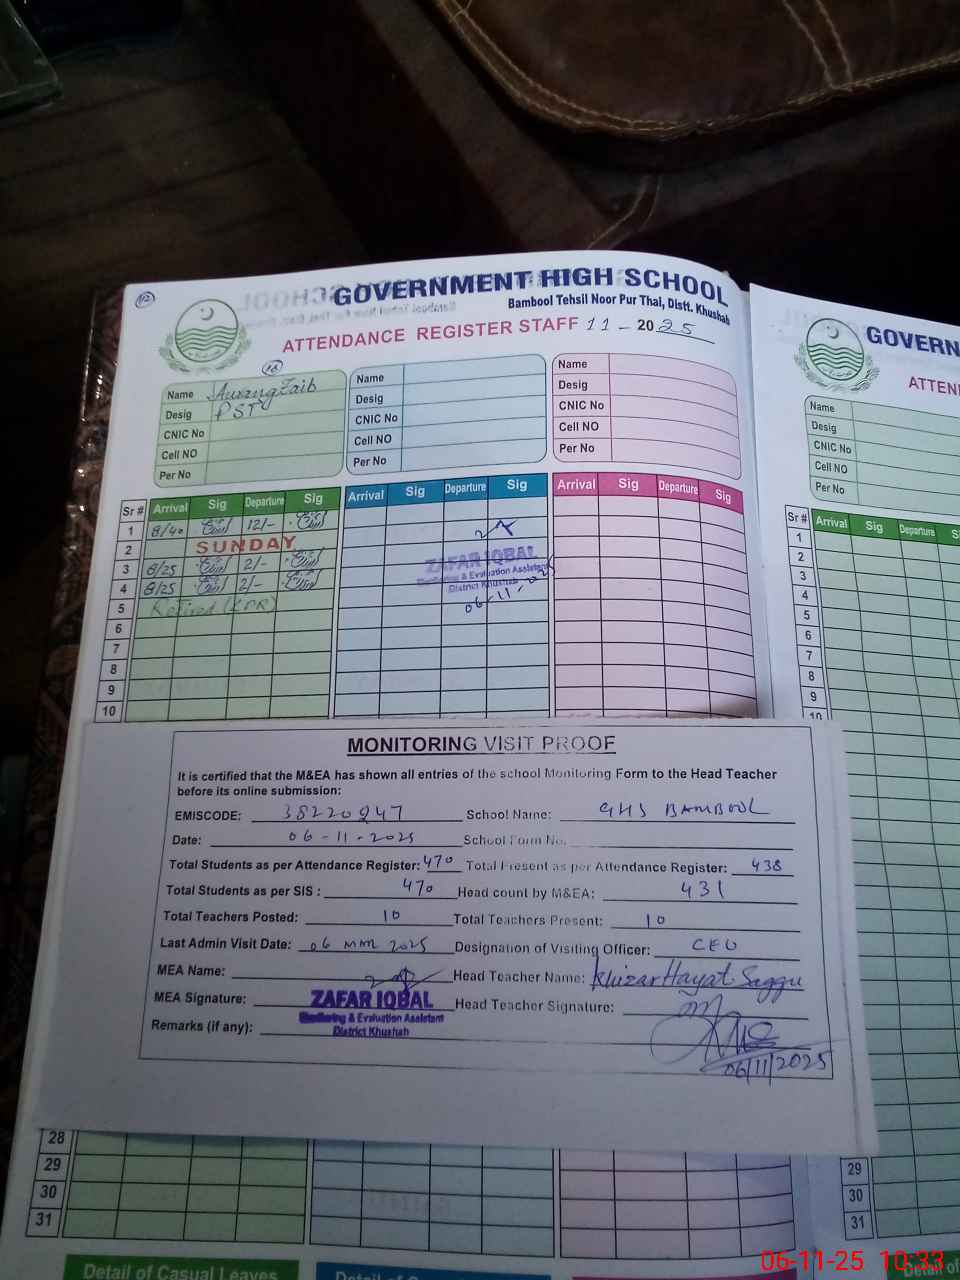 12
GOVERNMENT HIGH SCHOOL
Bambool Tehsil Noor Pur Thal, Distt. Khushab
ATTENDANCE REGISTER STAFF 11 - 2025
Name AurangZaib
Desig PST
CNIC No
Cell NO
Per No
Name
Desig
CNIC No
Cell NO
Per No
Name
Desig
CNIC No
Cell NO
Per No
Sr # Arrival Sig Departure Sig Arrival Sig Departure Sig Arrival Sig Departure Sig
1 8/40 12/-
2 SUNDAY
3 8/25 2/-
4 8/25 2/-
5 Retired
6
7
8
9
10
ZAFAR IQBAL
Monitoring & Evaluation Assistant
District Khushab
06-11-2025
GOVERN
ATTEN
Name
Desig
CNIC No
Cell NO
Per No
Sr # Arrival Sig Departure S
1
2
3
4
5
6
7
8
9
10
MONITORING VISIT PROOF
It is certified that the M&EA has shown all entries of the school Monitoring Form to the Head Teacher
before its online submission:
EMISCODE: 38220247 School Name: GHS BAMBOOL
Date: 06-11-2025 School Form No.
Total Students as per Attendance Register: 470 Total Present as per Attendance Register: 438
Total Students as per SIS : 470 Head count by M&EA: 431
Total Teachers Posted: 10 Total Teachers Present: 10
Last Admin Visit Date: 06 MAR 2025 Designation of Visiting Officer: CEO
MEA Name: Head Teacher Name: Khizar Hayat Saggu
MEA Signature: ZAFAR IQBAL Head Teacher Signature:
Monitoring & Evaluation Assistant
Remarks (if any): District Khushab
06/11/2025
28
29
30
31
29
30
31
Detail of Casual Leaves
Detail of
Detail of
06-11-25 10:33